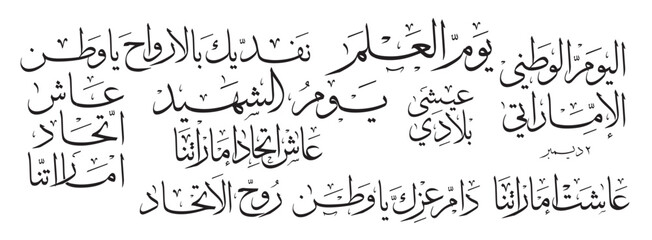 اليوم الوطني
الإماراتي
٢ ديسمبر
يوم العلم
نفديك بالارواح ياوطن
عيشي
بلادي
يوم الشهيد
عاش اتحاد إماراتنا
عاش
اتحاد
اماراتنا
عاشت إماراتنا
دام عزك ياوطن
روح الاتحاد